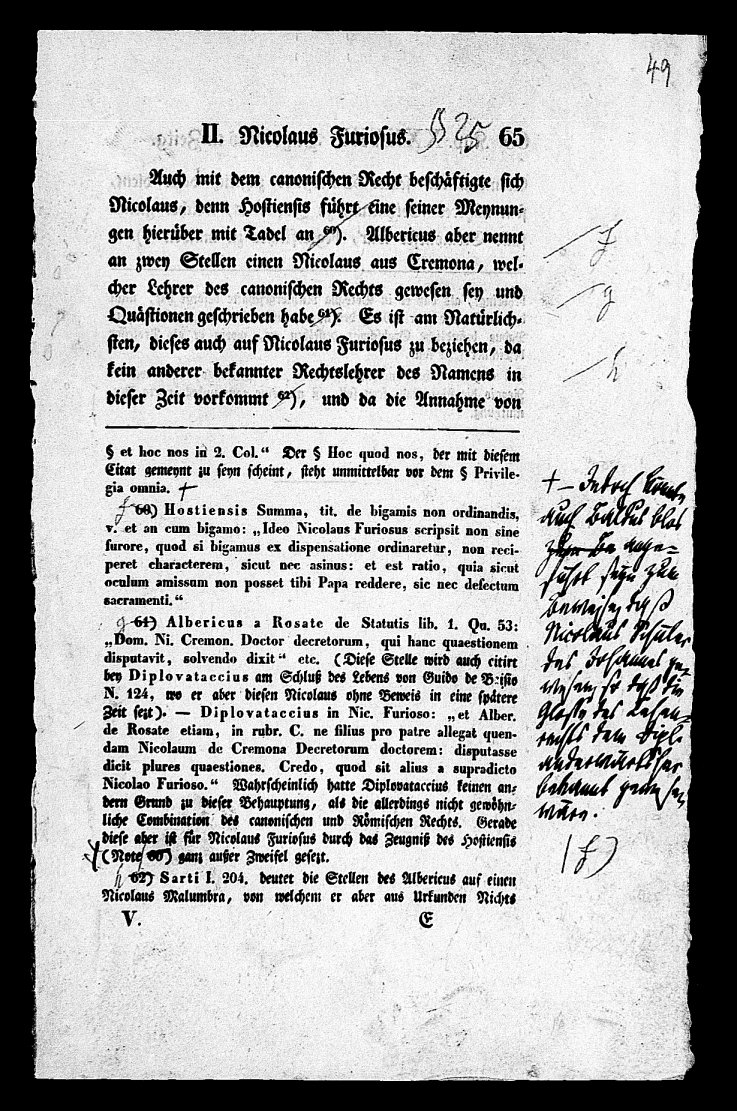 49
II. Nicolaus Furiosus. § 25 65
Auch mit dem canonischen Recht beschäftigte sich
Nicolaus, denn Hostiensis führt eine seiner Meynun-
gen hierüber mit Tadel an 60). Albericus aber nennt
f
an zwey Stellen einen Nicolaus aus Cremona, wel-
cher Lehrer des canonischen Rechts gewesen sey und
g
Quästionen geschrieben habe 61). Es ist am Natürlich-
sten, dieses auch auf Nicolaus Furiosus zu beziehen, da
kein anderer bekannter Rechtslehrer des Namens in
h
dieser Zeit vorkommt 62), und da die Annahme von
§ et hoc nos in 2. Col.“ Der § Hoc quod nos, der mit diesem
Citat gemeynt zu seyn scheint, steht unmittelbar vor dem § Privile-
gia omnia. +
f 60) Hostiensis Summa, tit. de bigamis non ordinandis,
v. et an cum bigamo: „Ideo Nicolaus Furiosus scripsit non sine
furore, quod si bigamus ex dispensatione ordinaretur, non reci-
peret characterem, sicut nec asinus: et est ratio, quia sicut
oculum amissum non posset tibi Papa reddere, sic nec defectum
sacramenti.“
g 61) Albericus a Rosate de Statutis lib. 1. Qu. 53:
„Dom. Ni. Cremon. Doctor decretorum, qui hanc quaestionem
disputavit, solvendo dixit“ etc. (Diese Stelle wird auch citirt
bey Diplovataccius am Schluß des Lebens von Guido de Baisio
N. 124, wo er aber diesen Nicolaus ohne Beweis in eine spätere
Zeit sezt). — Diplovataccius in Nic. Furioso: „et Alber.
de Rosate etiam, in rubr. C. ne filius pro patre allegat quen-
dam Nicolaum de Cremona Decretorum doctorem: disputasse
dicit plures quaestiones. Credo, quod sit alius a supradicto
Nicolao Furioso.“ Wahrscheinlich hatte Diplovataccius keinen an-
dern Grund zu dieser Behauptung, als die allerdings nicht gewöhn-
liche Combination des canonischen und Römischen Rechts. Gerade
diese aber ist für Nicolaus Furiosus durch das Zeugniß des Hostiensis
(Note 60) ganz außer Zweifel gesezt.
h 62) Sarti I. 204. deutet die Stellen des Albericus auf einen
Nicolaus Malumbra, von welchem er aber aus Urkunden Nichts
V. E
+ — Jedoch könnte
auch Baldus blos
ange=
führt seyn zum
Beweise, daß
Nicolaus Schüler
des Johannes ge=
wesen, so daß die
Glosse des Lehen=
rechts dem Dipl.
anderwärts her
bekannt gewesen
wäre.
(f)